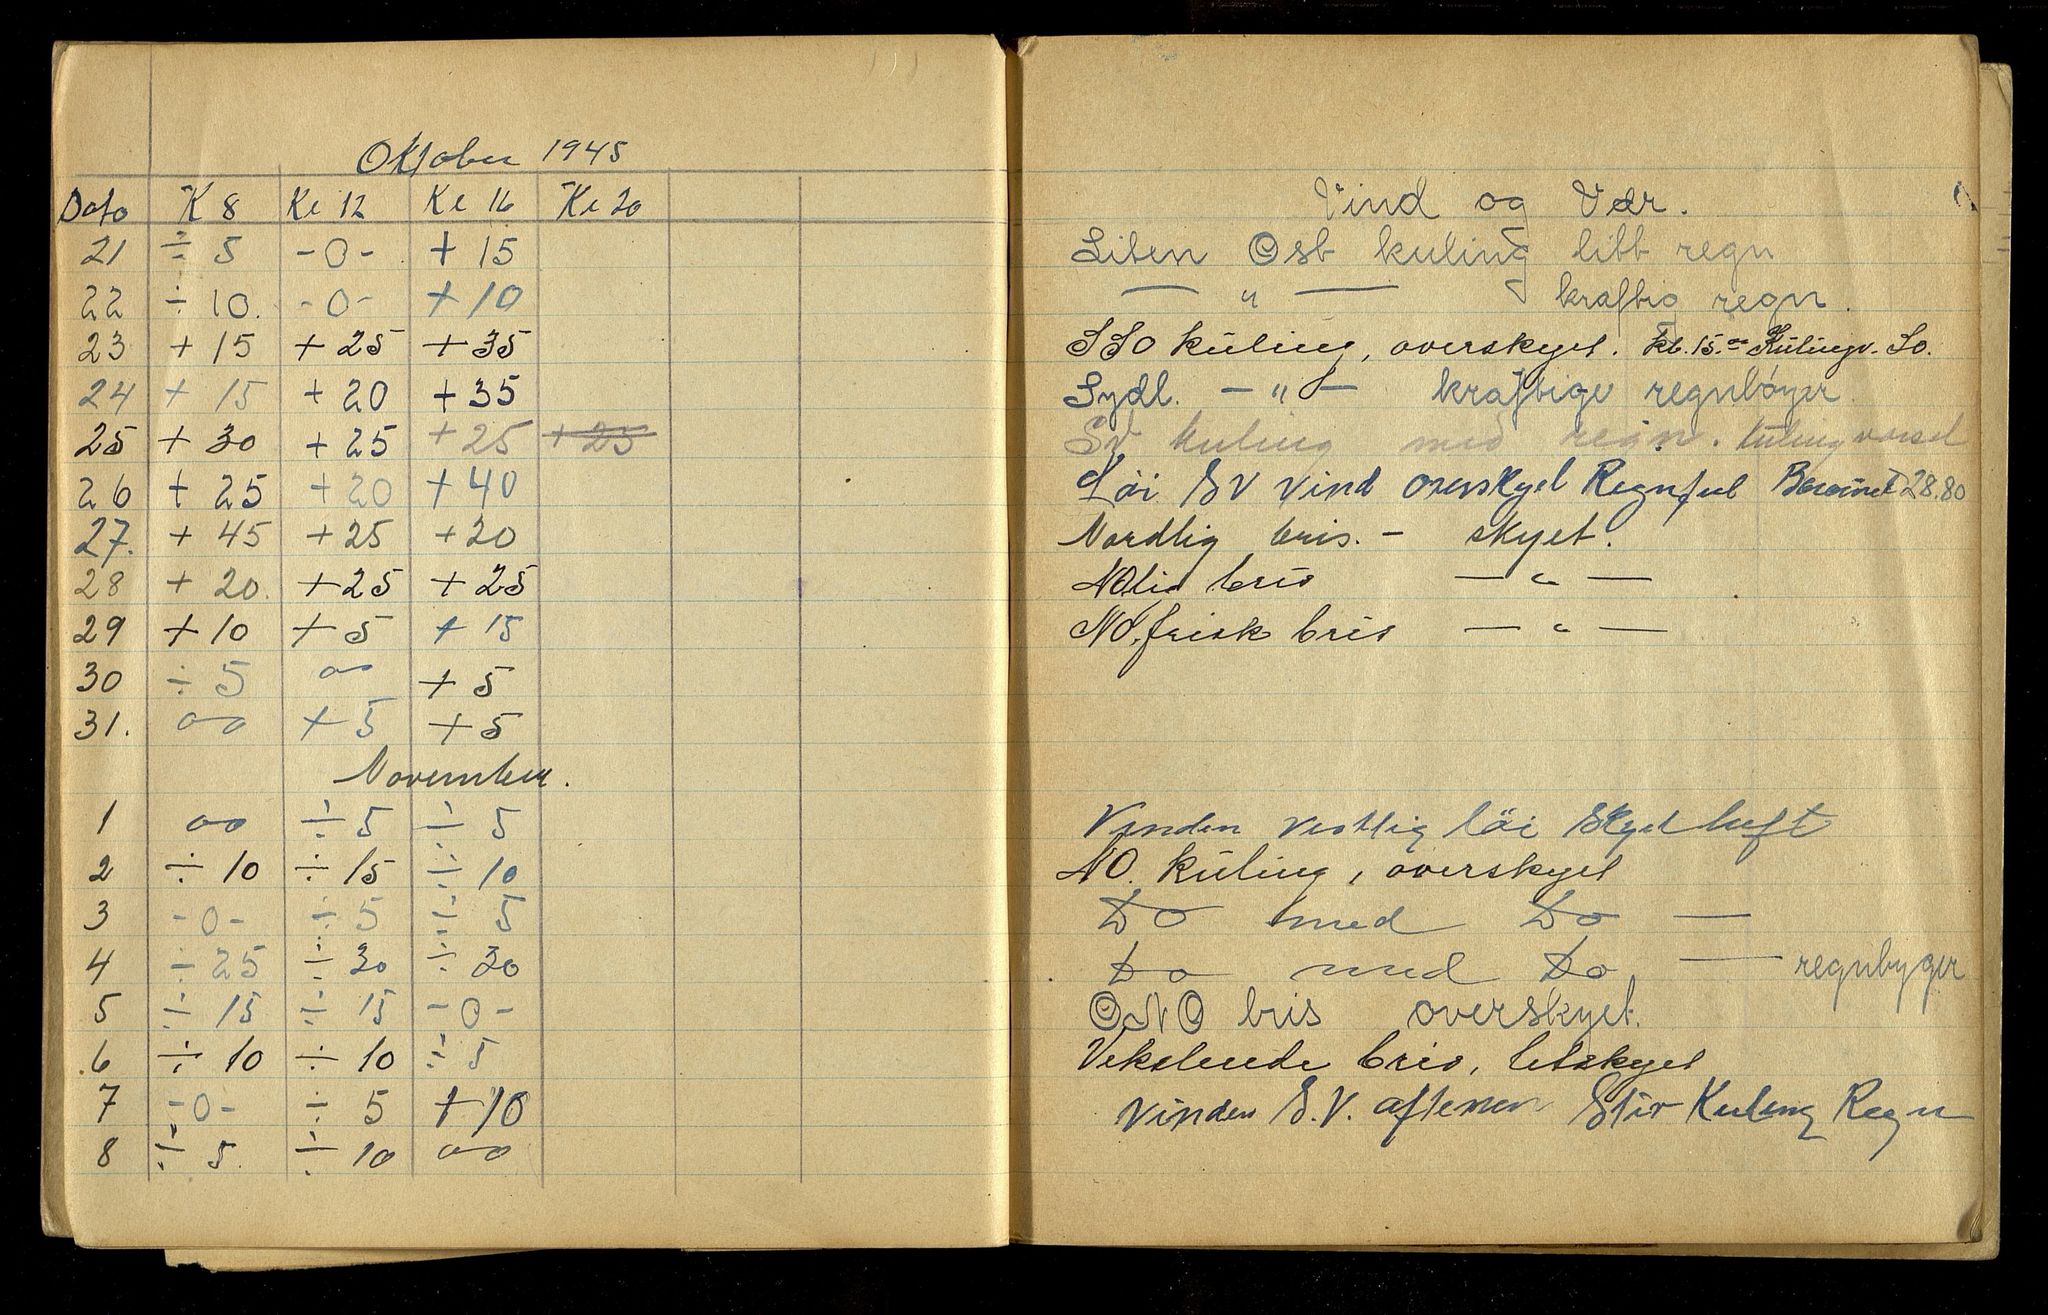 Oktober 1945
Dato K 8 Kl 12 Kl 16 Kl 20
21 ÷ 5 -0- + 15
22 ÷ 10. -0- + 10
23 + 15 + 25 + 35
24 + 15 + 20 + 35
25 + 30 + 25 + 25 + 25
26 + 25 + 20 + 40
27. + 45 + 25 + 20
28 + 20. + 25 + 25
29 + 10 + 5 + 15
30 ÷ 5 oo + 5
31. oo + 5 + 5
November.
1 oo ÷ 5 ÷ 5
2 ÷ 10 ÷ 15 ÷ 10
3 -0- ÷ 5 ÷ 5
4 ÷ 25 ÷ 30 ÷ 30
5 ÷ 15 ÷ 15 -0-
6 ÷ 10 ÷ 10 ÷ 5
7 -0- ÷ 5 + 10
8 ÷ 5. ÷ 10 oo
Vind og Vær.
Liten Ost kuling litt regn
— " — kraftig regn.
SSO kuling, overskyet. kl. 15.00 Kulingv. SO.
Sydl. — " — kraftige regnbøyer.
SV kuling med regn. kulingvarsel
Löi SV vind overskyet Regnful Baromet 28.80
Nordlig bris. - skyet.
NOlig bris — " —
NO. frisk bris — " —
Vinden vestlig löi Skyet luft
NO. kuling, overskyet
Do med Do —
Do med Do — regnbyger
ONO bris overskyet.
Vekslende bris, letskyet
Vinden S.V. aftenen Stiv Kuling Regn